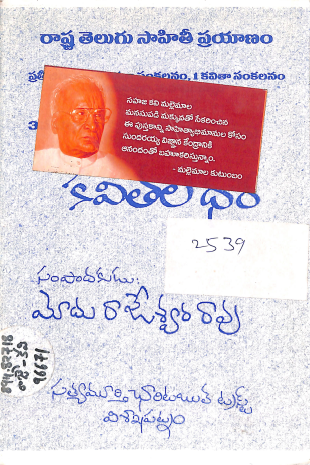 రాష్ట్ర తెలుగు సాహితీ ప్రయాణం
సంకలనం, 1 కవితా సంకలనం
సహజ కవి మల్లెమాల
మనసుపడి మక్కువతో సేకరించిన
ఈ పుస్తకాన్ని సాహిత్యాభిమానుల కోసం
సుందరయ్య విజ్ఞాన కేంద్రానికి
ఆనందంతో బహూకరిస్తున్నాం.
- మల్లెమాల కుటుంబం
2539
సంపాదకుడు:
మోదు రాజేశ్వర రావు
సత్యమూర్తి చారిటబుల్ ట్రస్ట్
విశాఖపట్నం
894.82718
96671